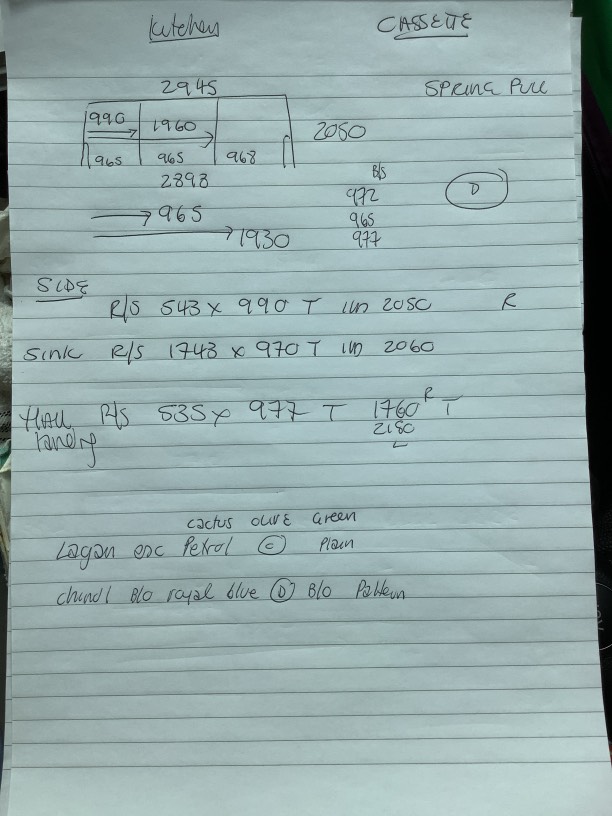 Kitchen CASSETTE
2945 SPRING PULL
990 1960 2050
965 965 968
2898 B/S
972 D
965 965
1930 977
SIDE
R/S 543 x 990 T in 2050 R
Sink R/S 1743 x 970 T in 2060
HALL R/S 535 x 977 T 1760 R T
landing 2180
L
cactus olive Green
Lagan esc Petrol C Plain
B/O royal blue D B/O Pattern